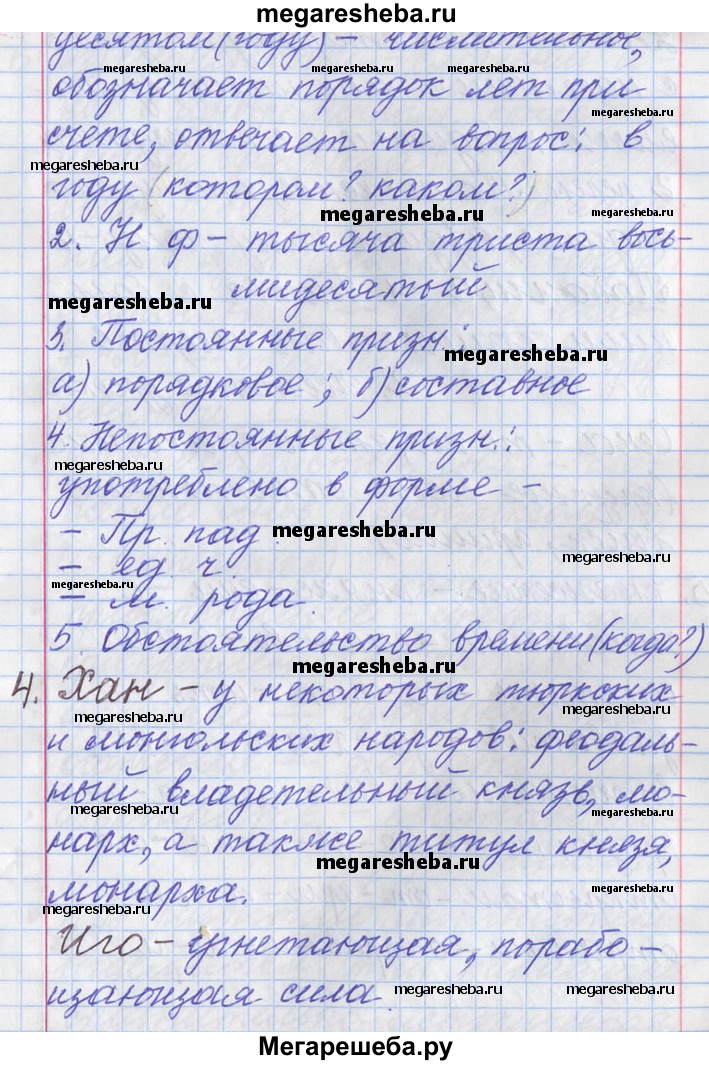 megaresheba.ru
десятом (году) - числительное,
megaresheba.ru megaresheba.ru megaresheba.ru
обозначает порядок лет при
megaresheba.ru
счете, отвечает на вопрос: в
megaresheba.ru
году (котором? каком?)
megaresheba.ru megaresheba.ru
2. Н. ф - тысяча триста вось-
мидесятый
megaresheba.ru
3. Постоянные призн.:
megaresheba.ru
а) порядковое; б) составное
4. Непостоянные призн.:
megaresheba.ru
употреблено в форме -
- Пр. пад.
megaresheba.ru
megaresheba.ru
- ед. ч.
megaresheba.ru
- м. рода.
5. Обстоятельство времени (когда?)
megaresheba.ru
4. Хан - у некоторых тюркских
megaresheba.ru megaresheba.ru
и монгольских народов: феодаль-
ный владетельный князь, мо-
megaresheba.ru megaresheba.ru
нарх, а также титул князя,
megaresheba.ru
монарха.
megaresheba.ru
megaresheba.ru
Иго - угнетающая, порабо-
щающая сила.
megaresheba.ru megaresheba.ru
Мегарешеба.ру